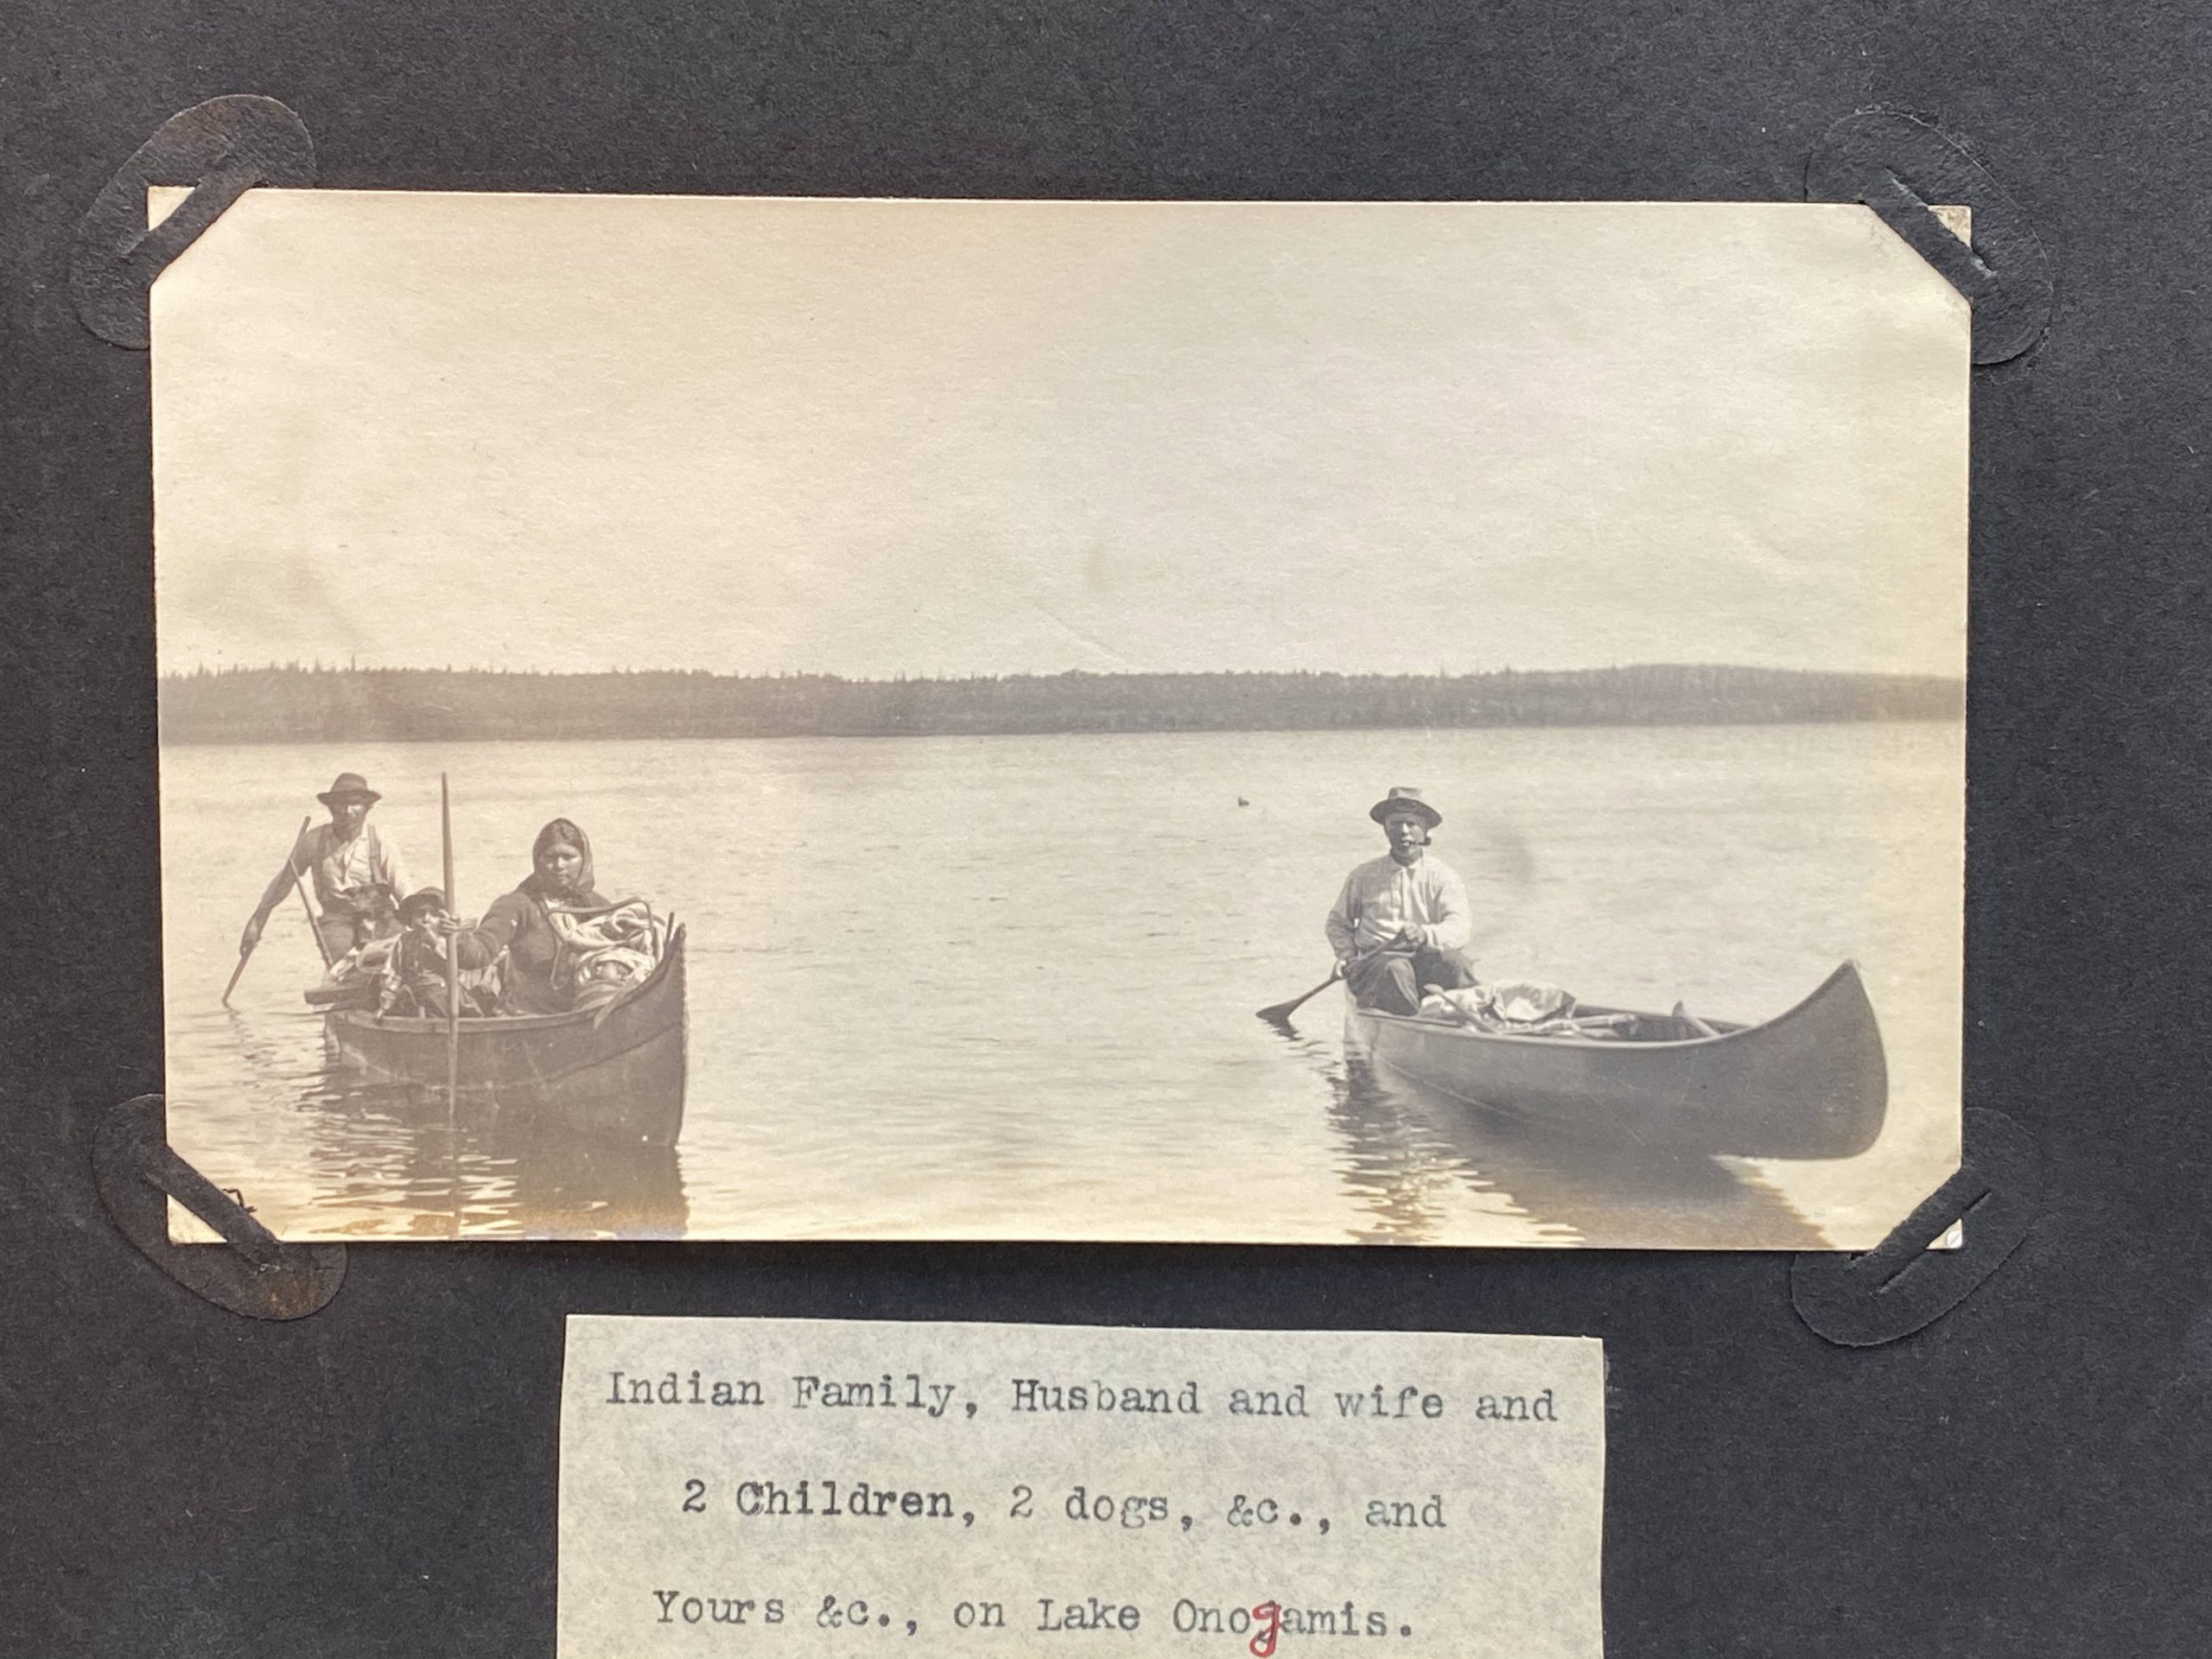 Indian Family, Husband and wife and
2 Children, 2 dogs, &c., and
Yours &c., on Lake Onogamis.